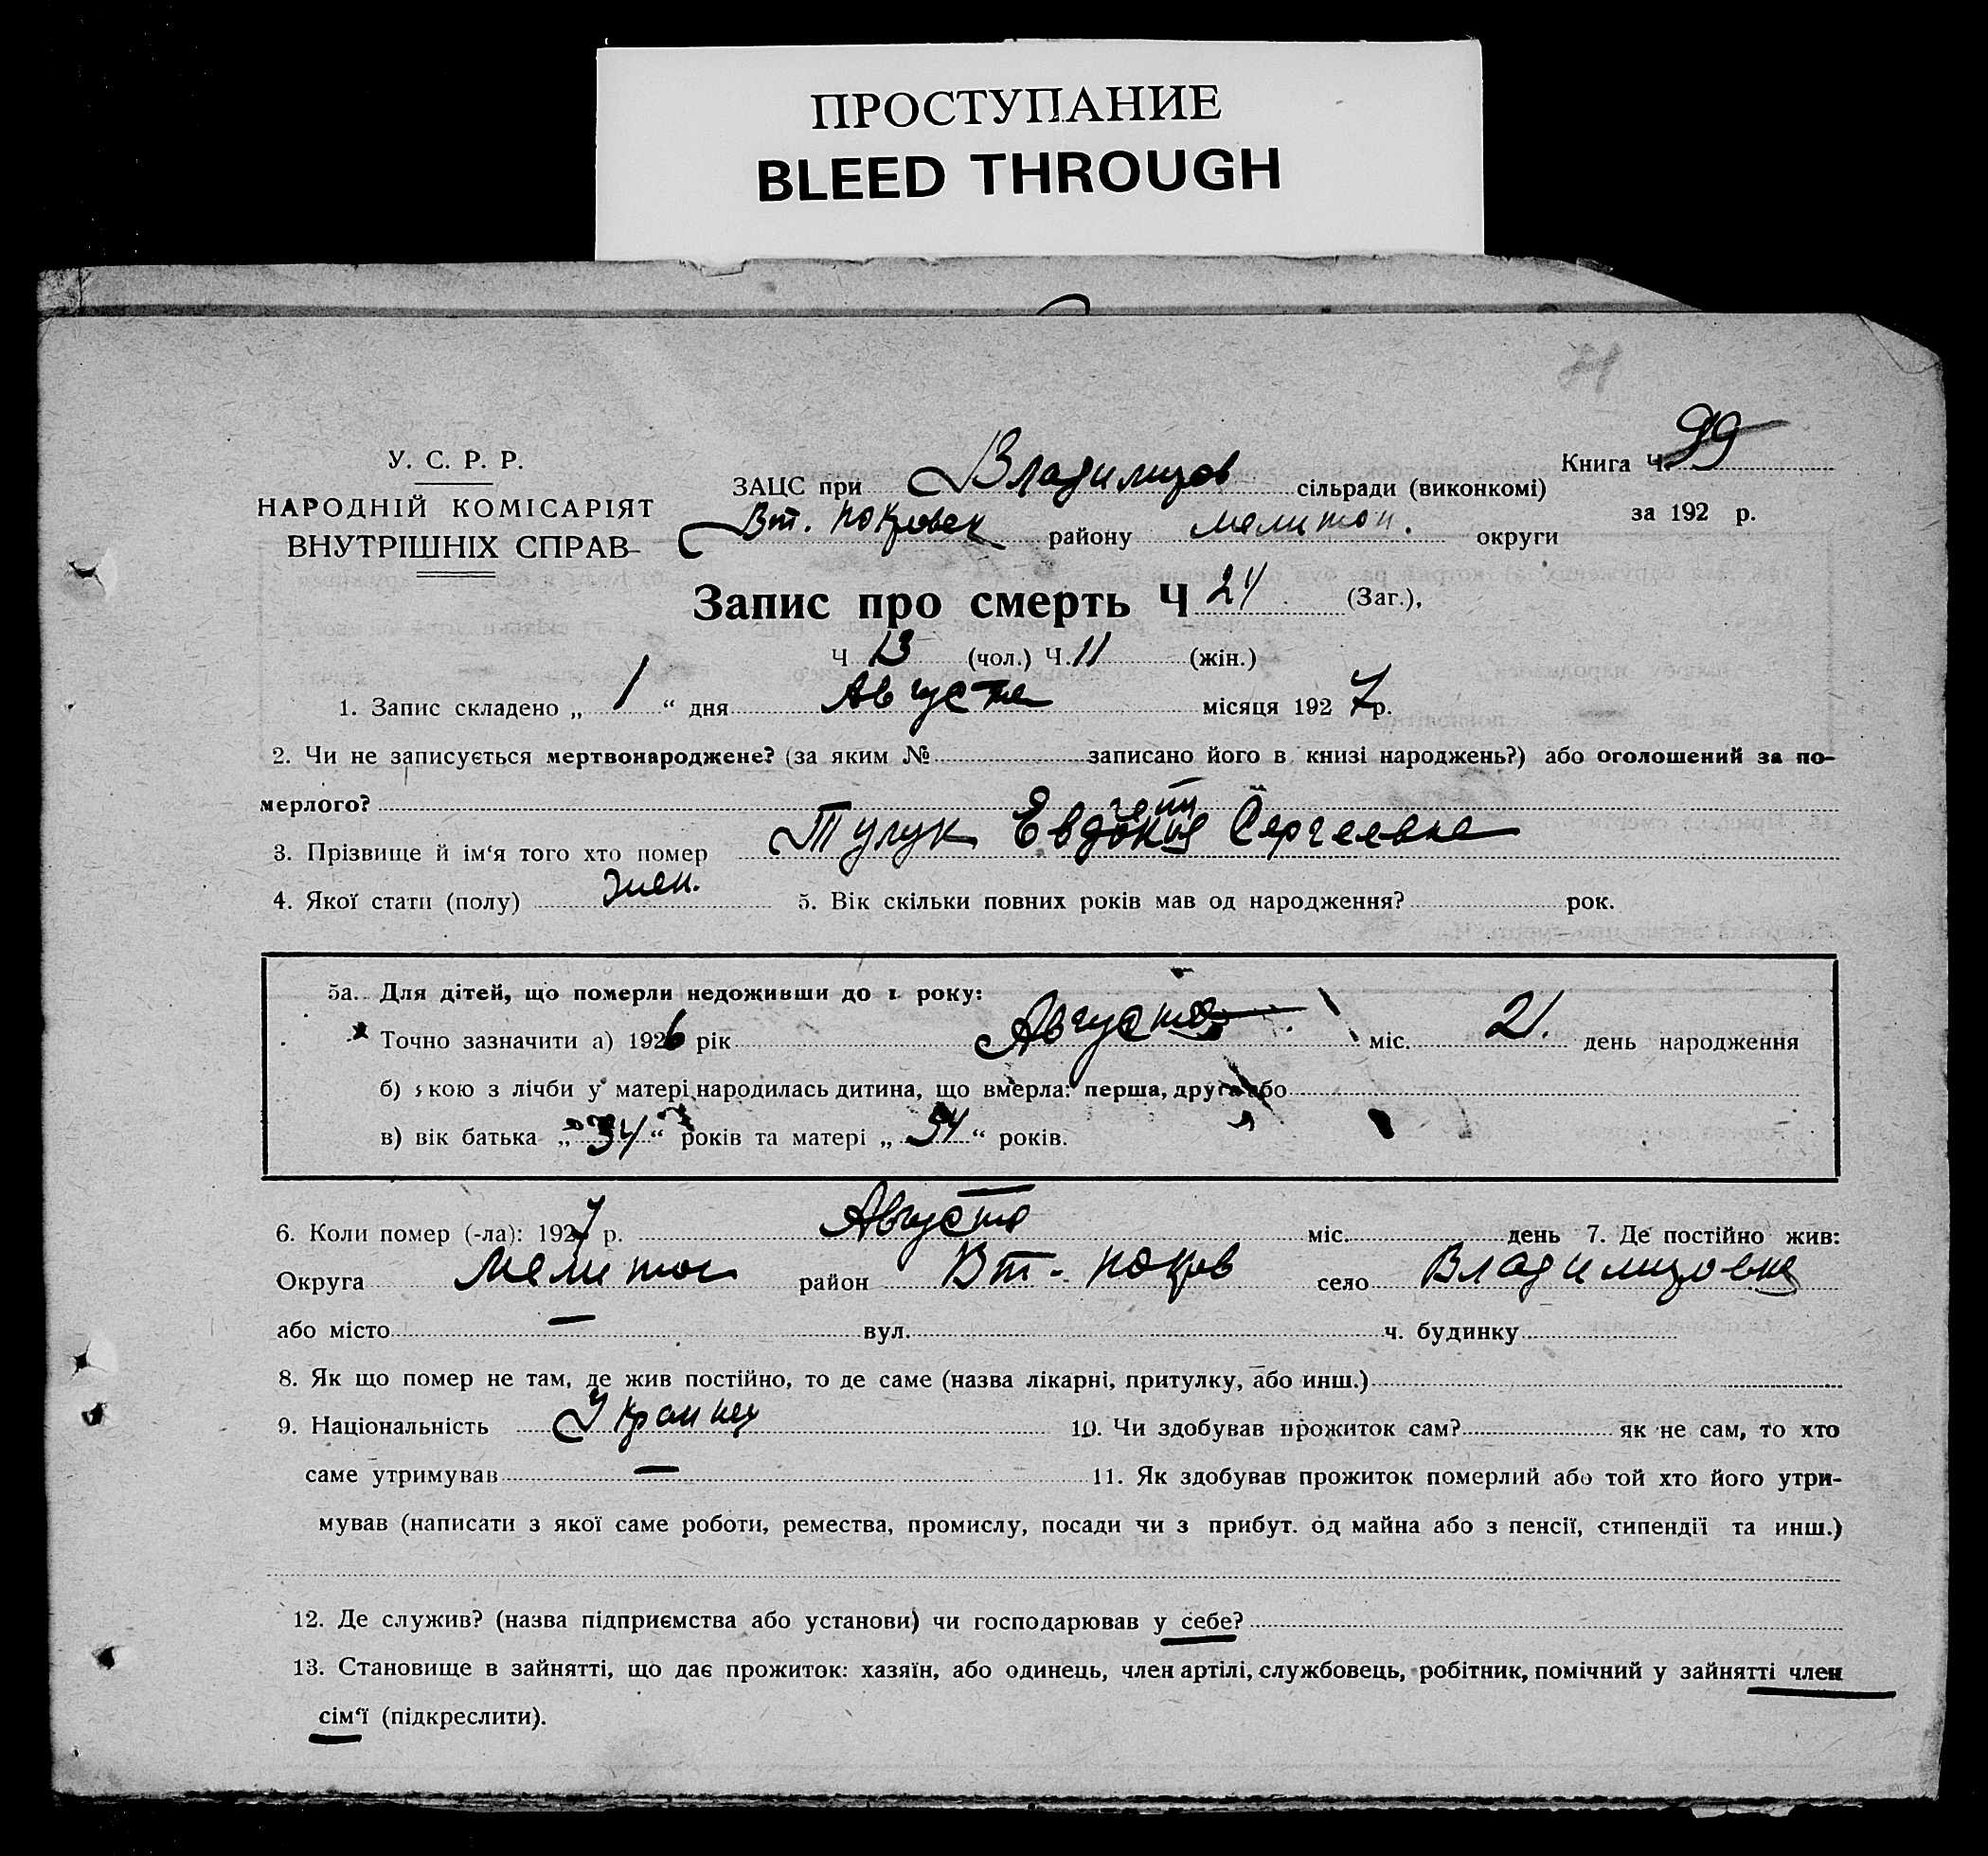 ПРОСТУПАНИЕ
BLEED THROUGH
У. С. Р. Р.
НАРОДНІЙ КОМІСАРІЯТ
ВНУТРІШНІХ СПРАВ
Книга Ч. 99
за 192 р.
ЗАЦС при Владимиров сільради (виконкомі)
Вт. покровск району мелитоп. округи
Запис про смерть Ч 24 (Заг.),
Ч 13 (чол.) Ч. 11 (жін.)
1. Запис складено „ 1 “ дня Августа місяця 1927 р.
2. Чи не записується мертвонароджене? (за яким № записано його в книзі народжень?) або оголошений за по-
мерлого?
3. Прізвище й ім‘я того хто помер Тулук Евдокия Сергеевна
4. Якої стати (полу) жен. 5. Вік скільки повних років мав од народження? рок.
5а. Для дітей, що померли недоживши до 1 року:
Точно зазначити а) 1926 рік Августа міс. 21. день народження
б) якою з лічби у матері народилась дитина, що вмерла: перша, друга або
в) вік батька „ 34 “ років та матері „ 34 “ років.
6. Коли помер (-ла): 1927 р. Августа міс. день 7. Де постійно жив:
Округа Мелитоп район Вт. покров село Владимировка
або місто — вул. ч. будинку
8. Як що помер не там, де жив постійно, то де саме (назва лікарні, притулку, або инш.)
9. Національність Украинец 10. Чи здобував прожиток сам? як не сам, то хто
саме утримував — 11. Як здобував прожиток померлий або той хто його утри-
мував (написати з якої саме роботи, ремества, промислу, посади чи з прибут. од майна або з пенсії, стипендії та инш.)
12. Де служив? (назва підприємства або установи) чи господарював у себе?
13. Становище в зайнятті, що дає прожиток: хазяїн, або одинець, член артілі, службовець, робітник, помічний у зайнятті член
сім‘ї (підкреслити).